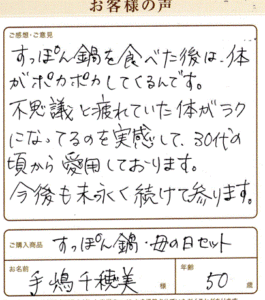 お客様の声
ご感想・ご意見
すっぽん鍋を食べた後は、体
がポカポカしてくるんです。
不思議と疲れていた体がラク
になってるのを実感して、30代の
頃から愛用しております。
今後も末永く続けて参ります。
ご購入商品 すっぽん鍋・母の日セット
お名前 手嶋千穂美 様 年齢 50 歳